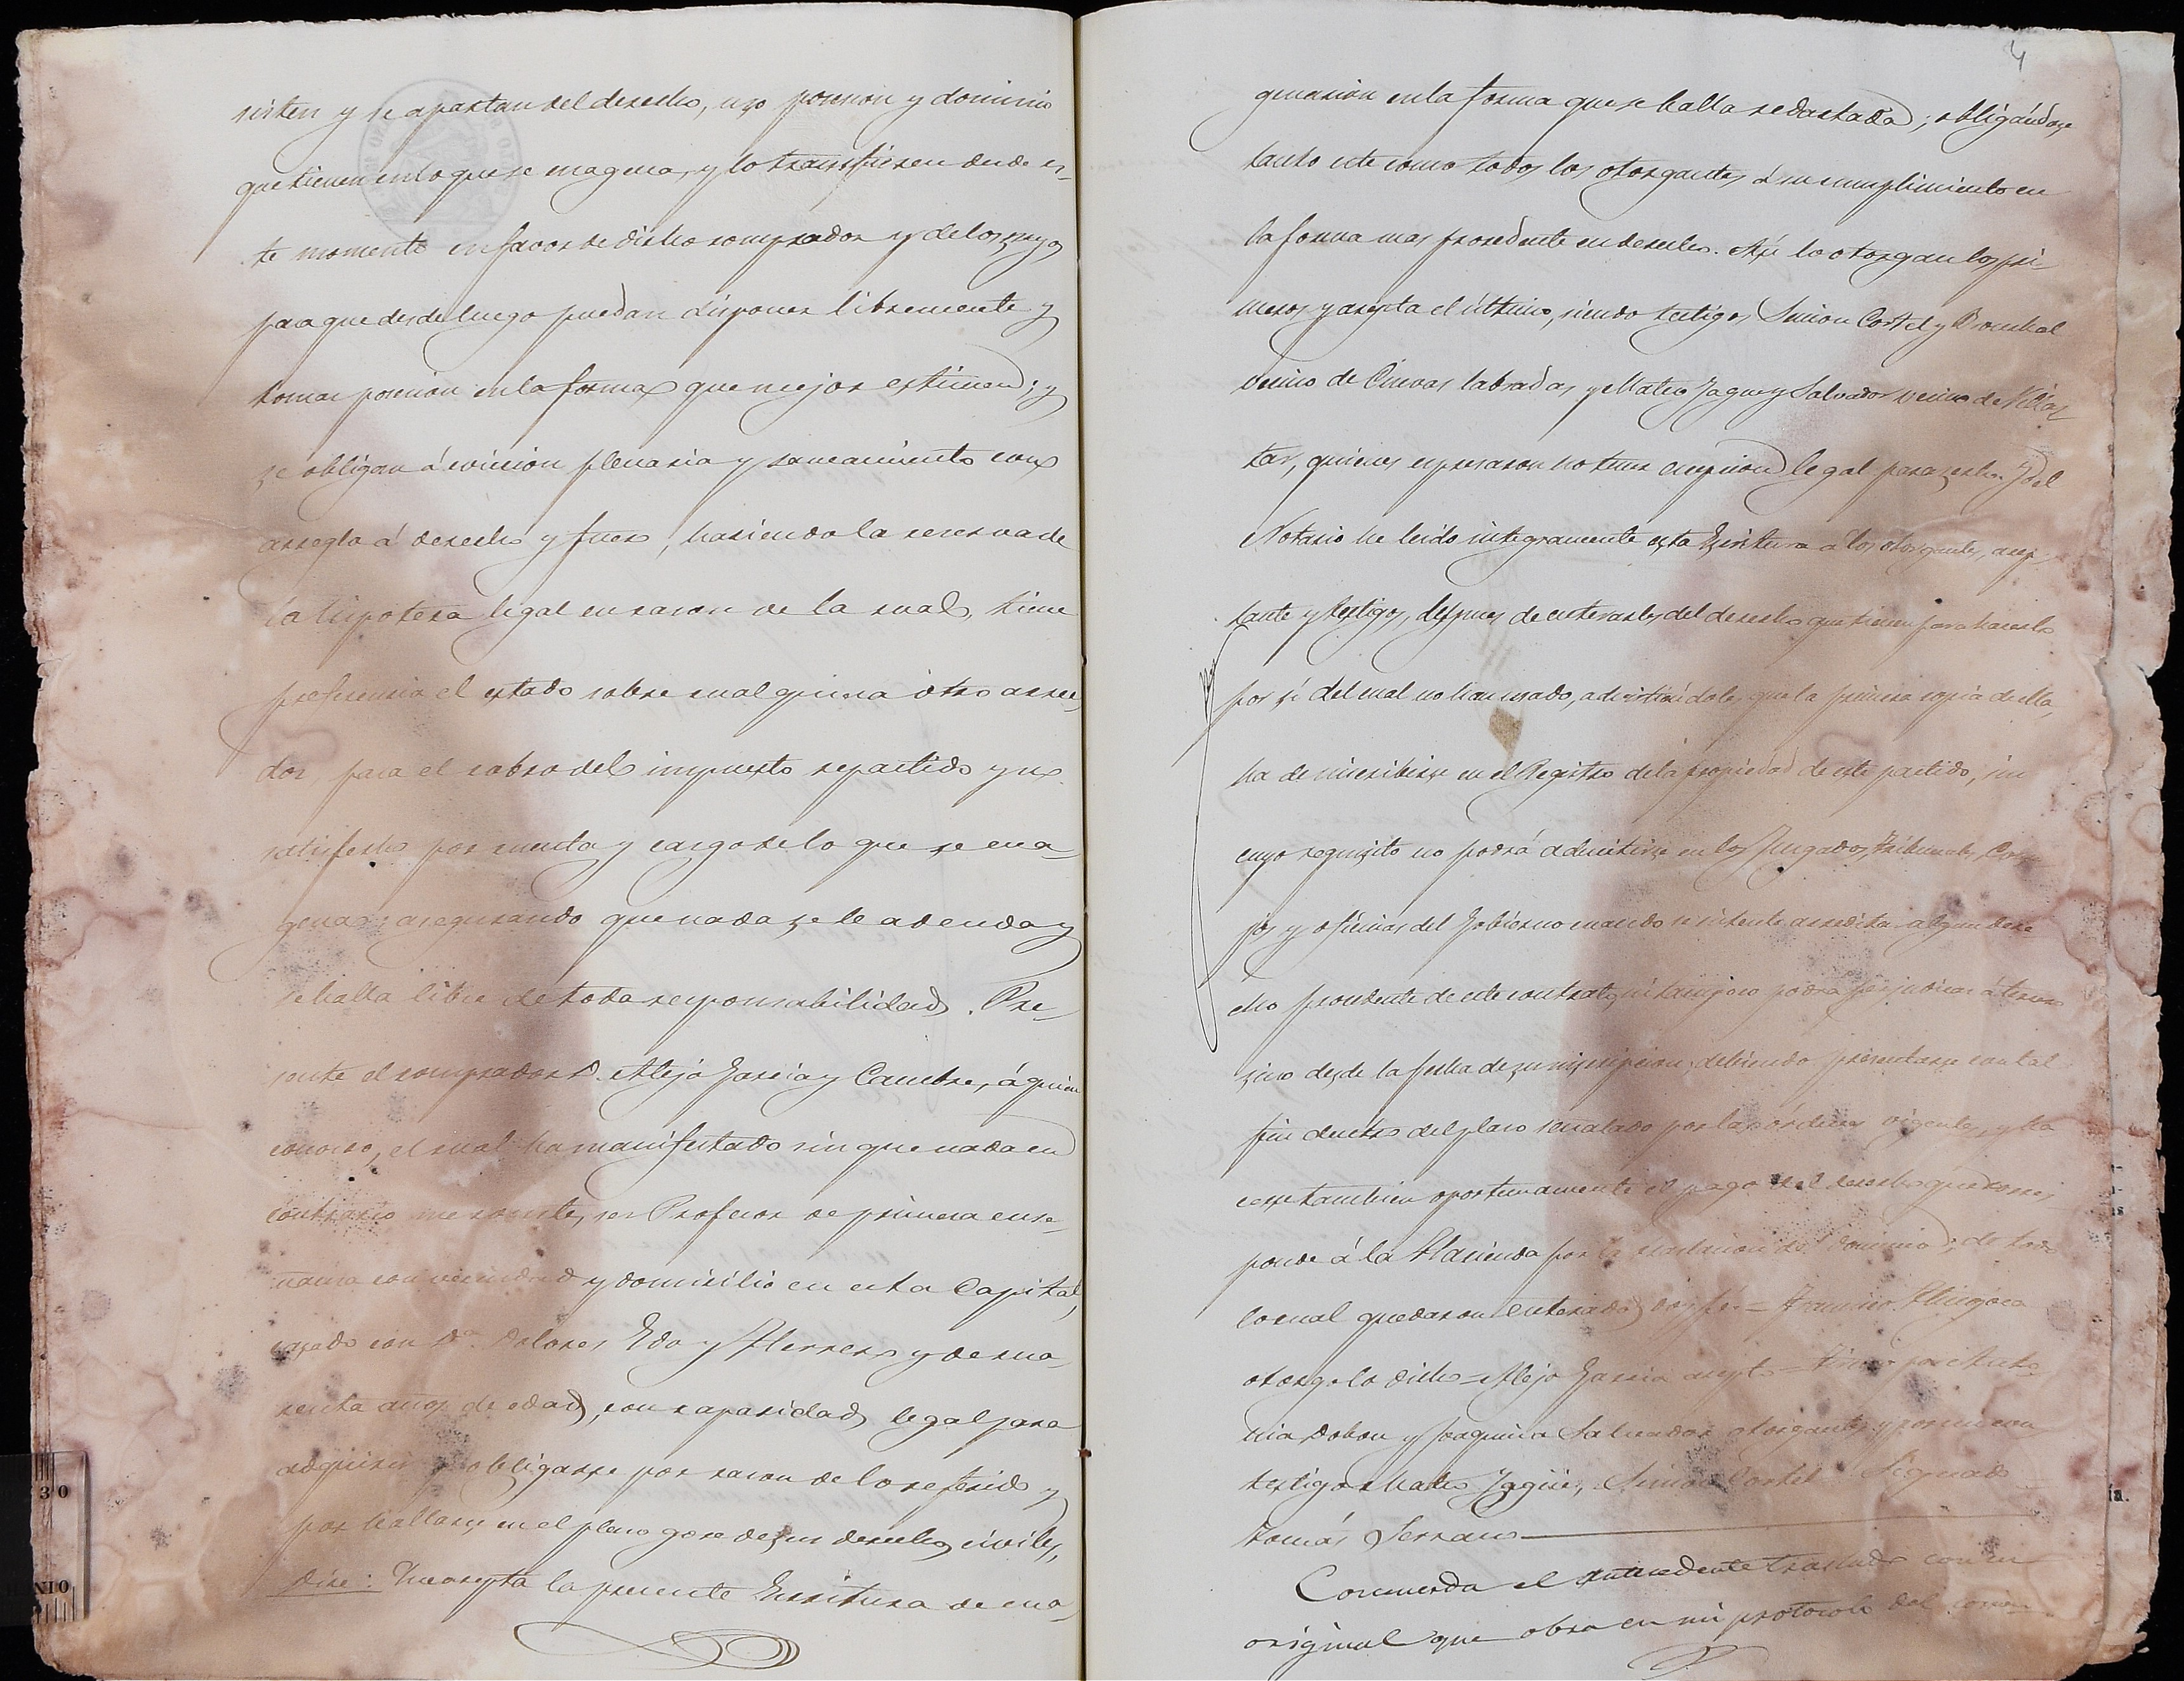 sisten y se apartan del derecho, uso posesion y dominio
que tienen en lo que se enagena, y lo transfieren desde es-
te momento en favor de dicho comprador y de los suyos
para que desde luego puedan disponer libremente y
tomar posesion en la forma que mejor estimen; y
se obligan á eviccion plenaria y saneamiento con
arreglo á derecho y fuero, haciendo la reserva de
la hipoteca legal en razon de la cual, tiene
preferencia el estado sobre cualquiera otro acree-
dor, para el cobro del impuesto repartido y no
satisfecho por cuenta y cargo de lo que se ena-
gena; asegurando que nada se le adeuda y
se halla libre de toda responsabilidad. Pre-
sente el comprador D. Alejo Garcia y Cambre, á quien
conozco, el cual ha manifestado sin que nada en
contrario me conste, ser Profesor de primera ense-
ñanza con vecindad y domicilio en esta Capital,
casado con Dª. Dolores Edo y Herrero y de cua-
renta años de edad, con capacidad legal para
adquirir y obligarse por razon de lo referido y
por hallarse en el pleno goce de sus derechos civiles,
dice: Que acepta la presente Escritura de ena-
4
genacion en la forma que se halla redactada; obligándose
tanto este como todos los otorgantes á su cumplimiento en
la forma mas procedente en derecho. Asi lo otorgan los pri-
meros y acepta el último, siendo testigos Simon Cortel y
vecino de Cuevas labradas y Mateo Yague y Salvador vecino de Villas-
tar, quienes expresaron no tener excepcion legal para serlo. Yo el
Notario he leido integramente esta Escritura á los otorgantes, acep-
tante y testigos, despues de enterarles del derecho que tienen para hacerlo
por sí del cual no han usado, advirtiéndoles que la primera copia de ella,
ha de inscribirse en el Registro de la propiedad de este partido, sin
cuyo requisito no podrá admitirse en los Juzgados, Tribunales, Conse-
jos y oficinas del Gobierno cuando se intente acreditar algun dere-
cho procedente de este contrato, ni tampoco podrá perjudicar á tercero
sino desde la fecha de su inscripcion, debiendo presentarse con tal
fin dentro del plazo señalado por las órdenes vigentes, y ha
cerse tambien oportunamente el pago del derecho que corres-
ponde á la Hacienda por la traslacion de dominio; de todo
lo cual quedaron enterados, doy fé = Francisco
otorgo lo dicho = Alejo Garcia acepto = Firmo por Anto-
nia Dobon y Joaquina Salvador otorgantes y por mi con
testigo Mateo Yagüe, Simon Cortel = Signado
Tomás Serrano
Concuerda el antecedente traslado con su
original que obra en mi protocolo del corrien-